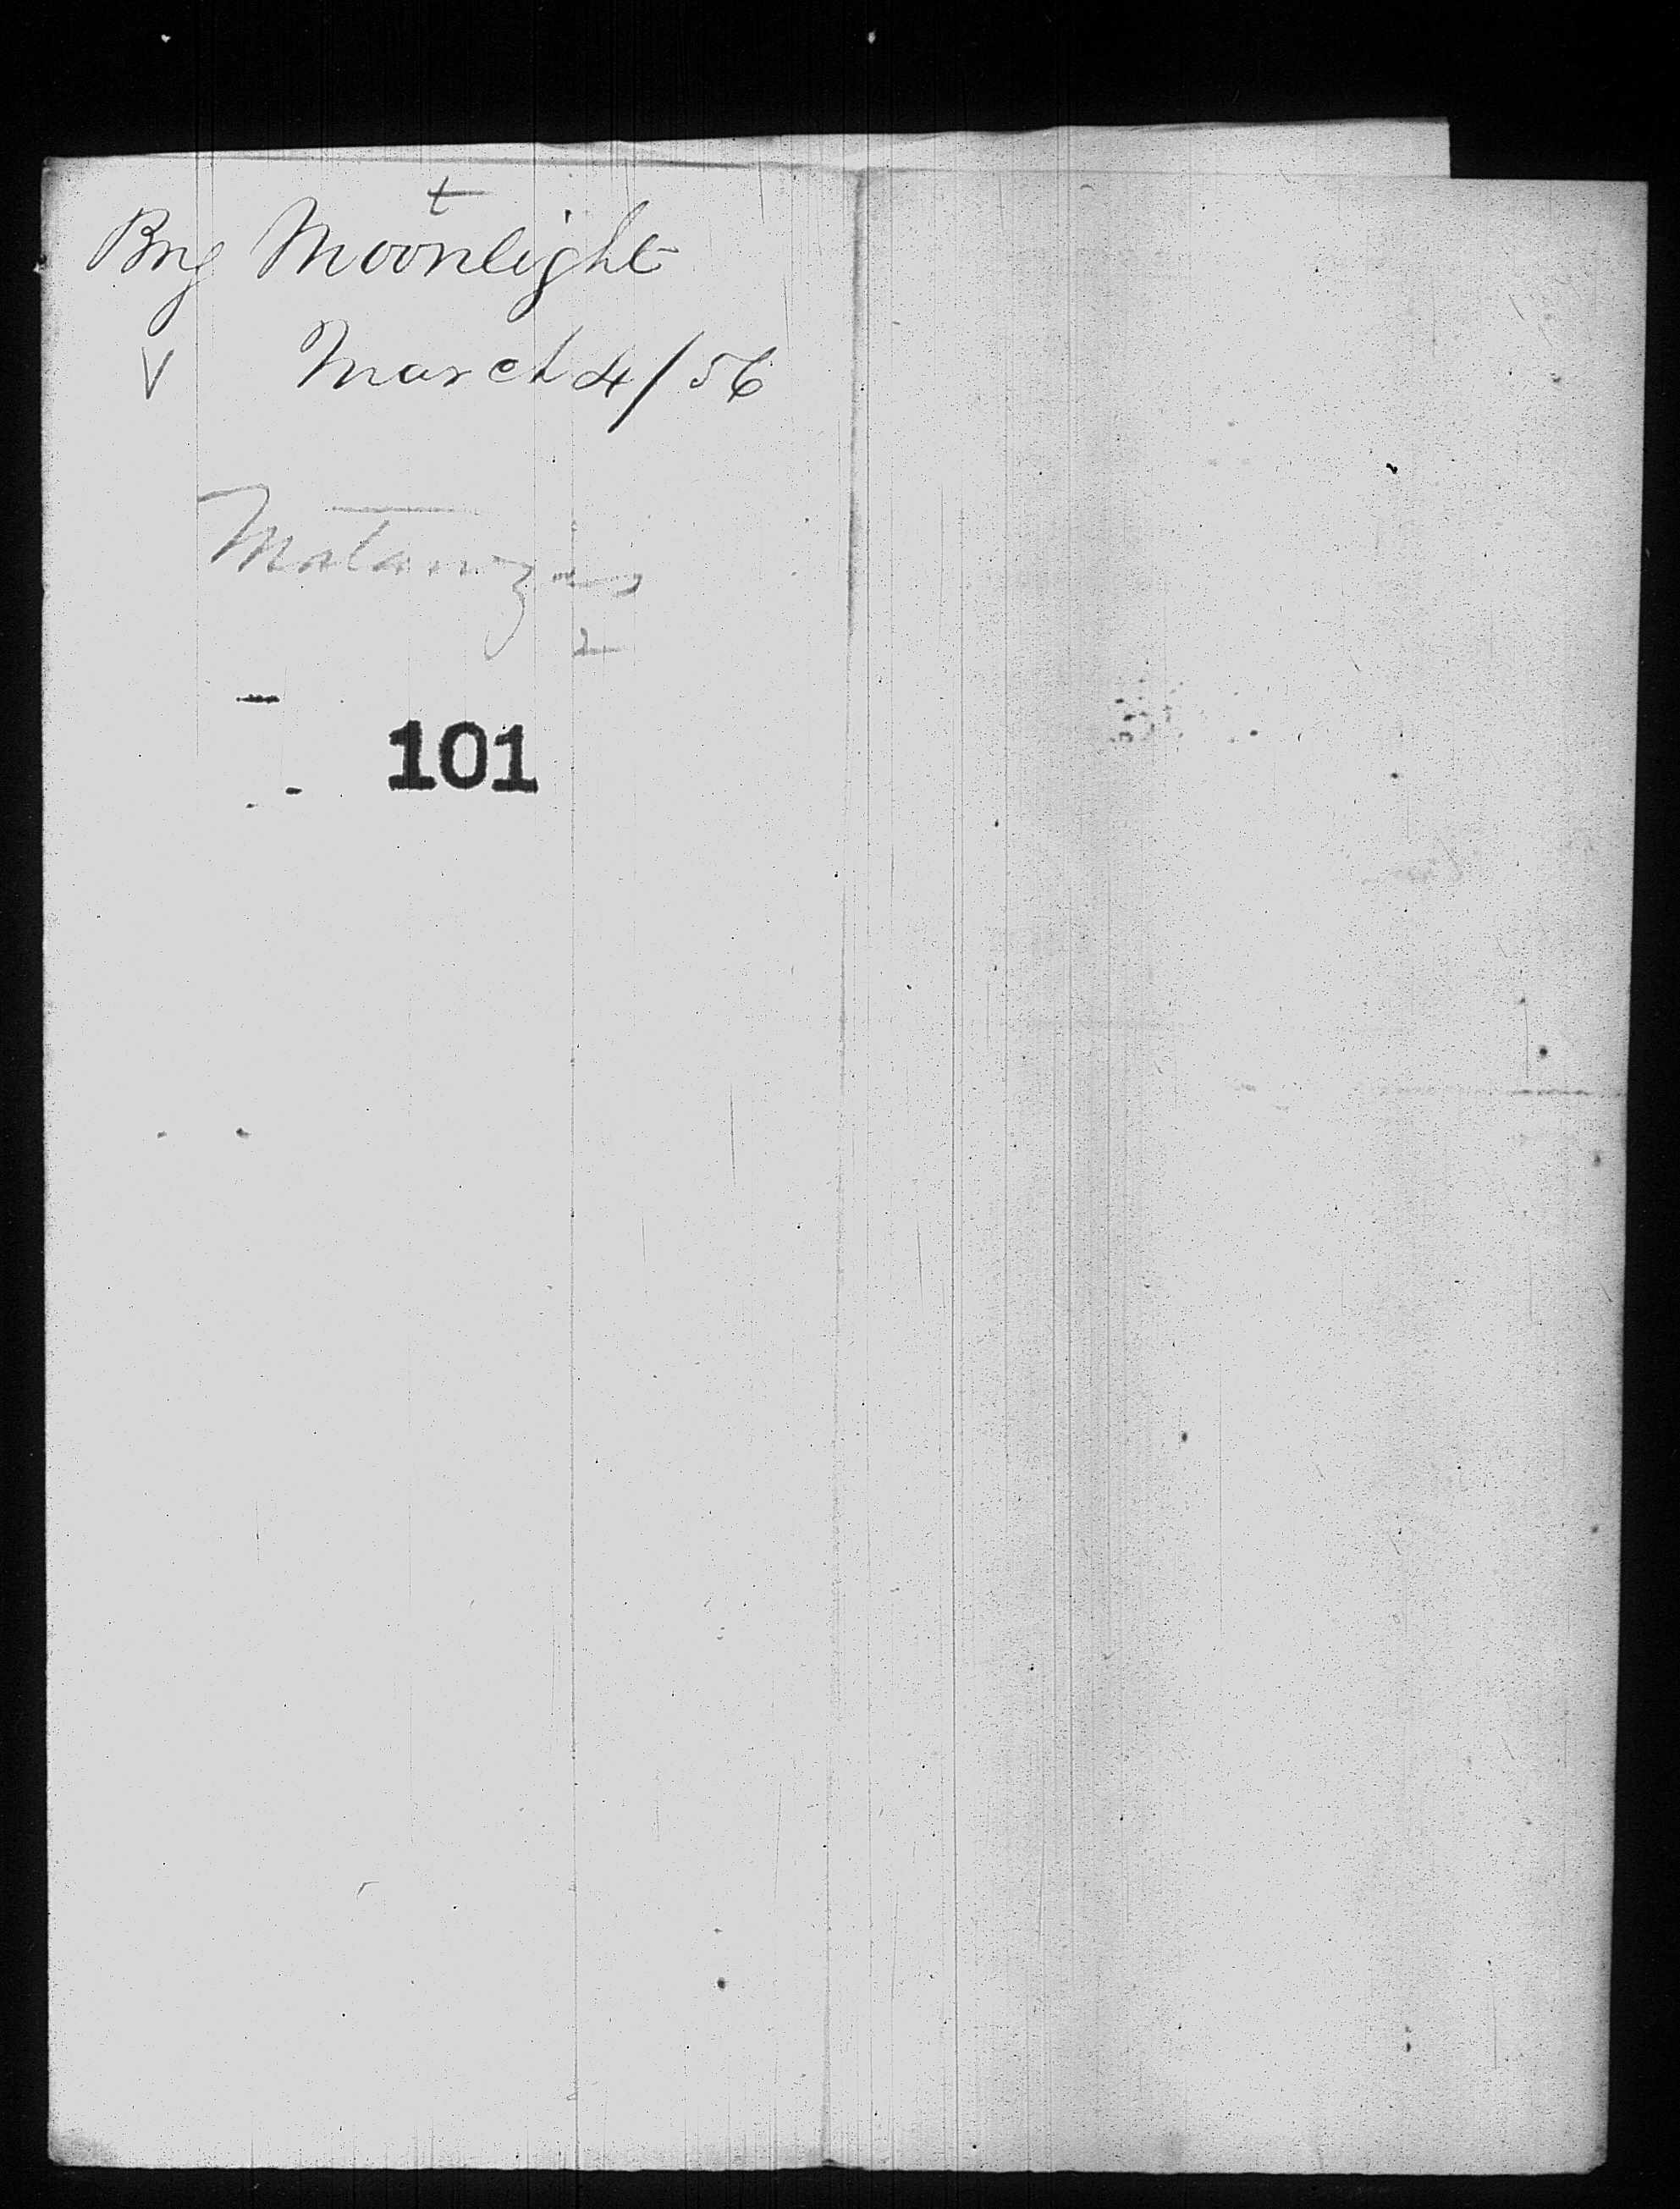 t
Brig Moonlight
V March 4/56
Matanzas
2
101